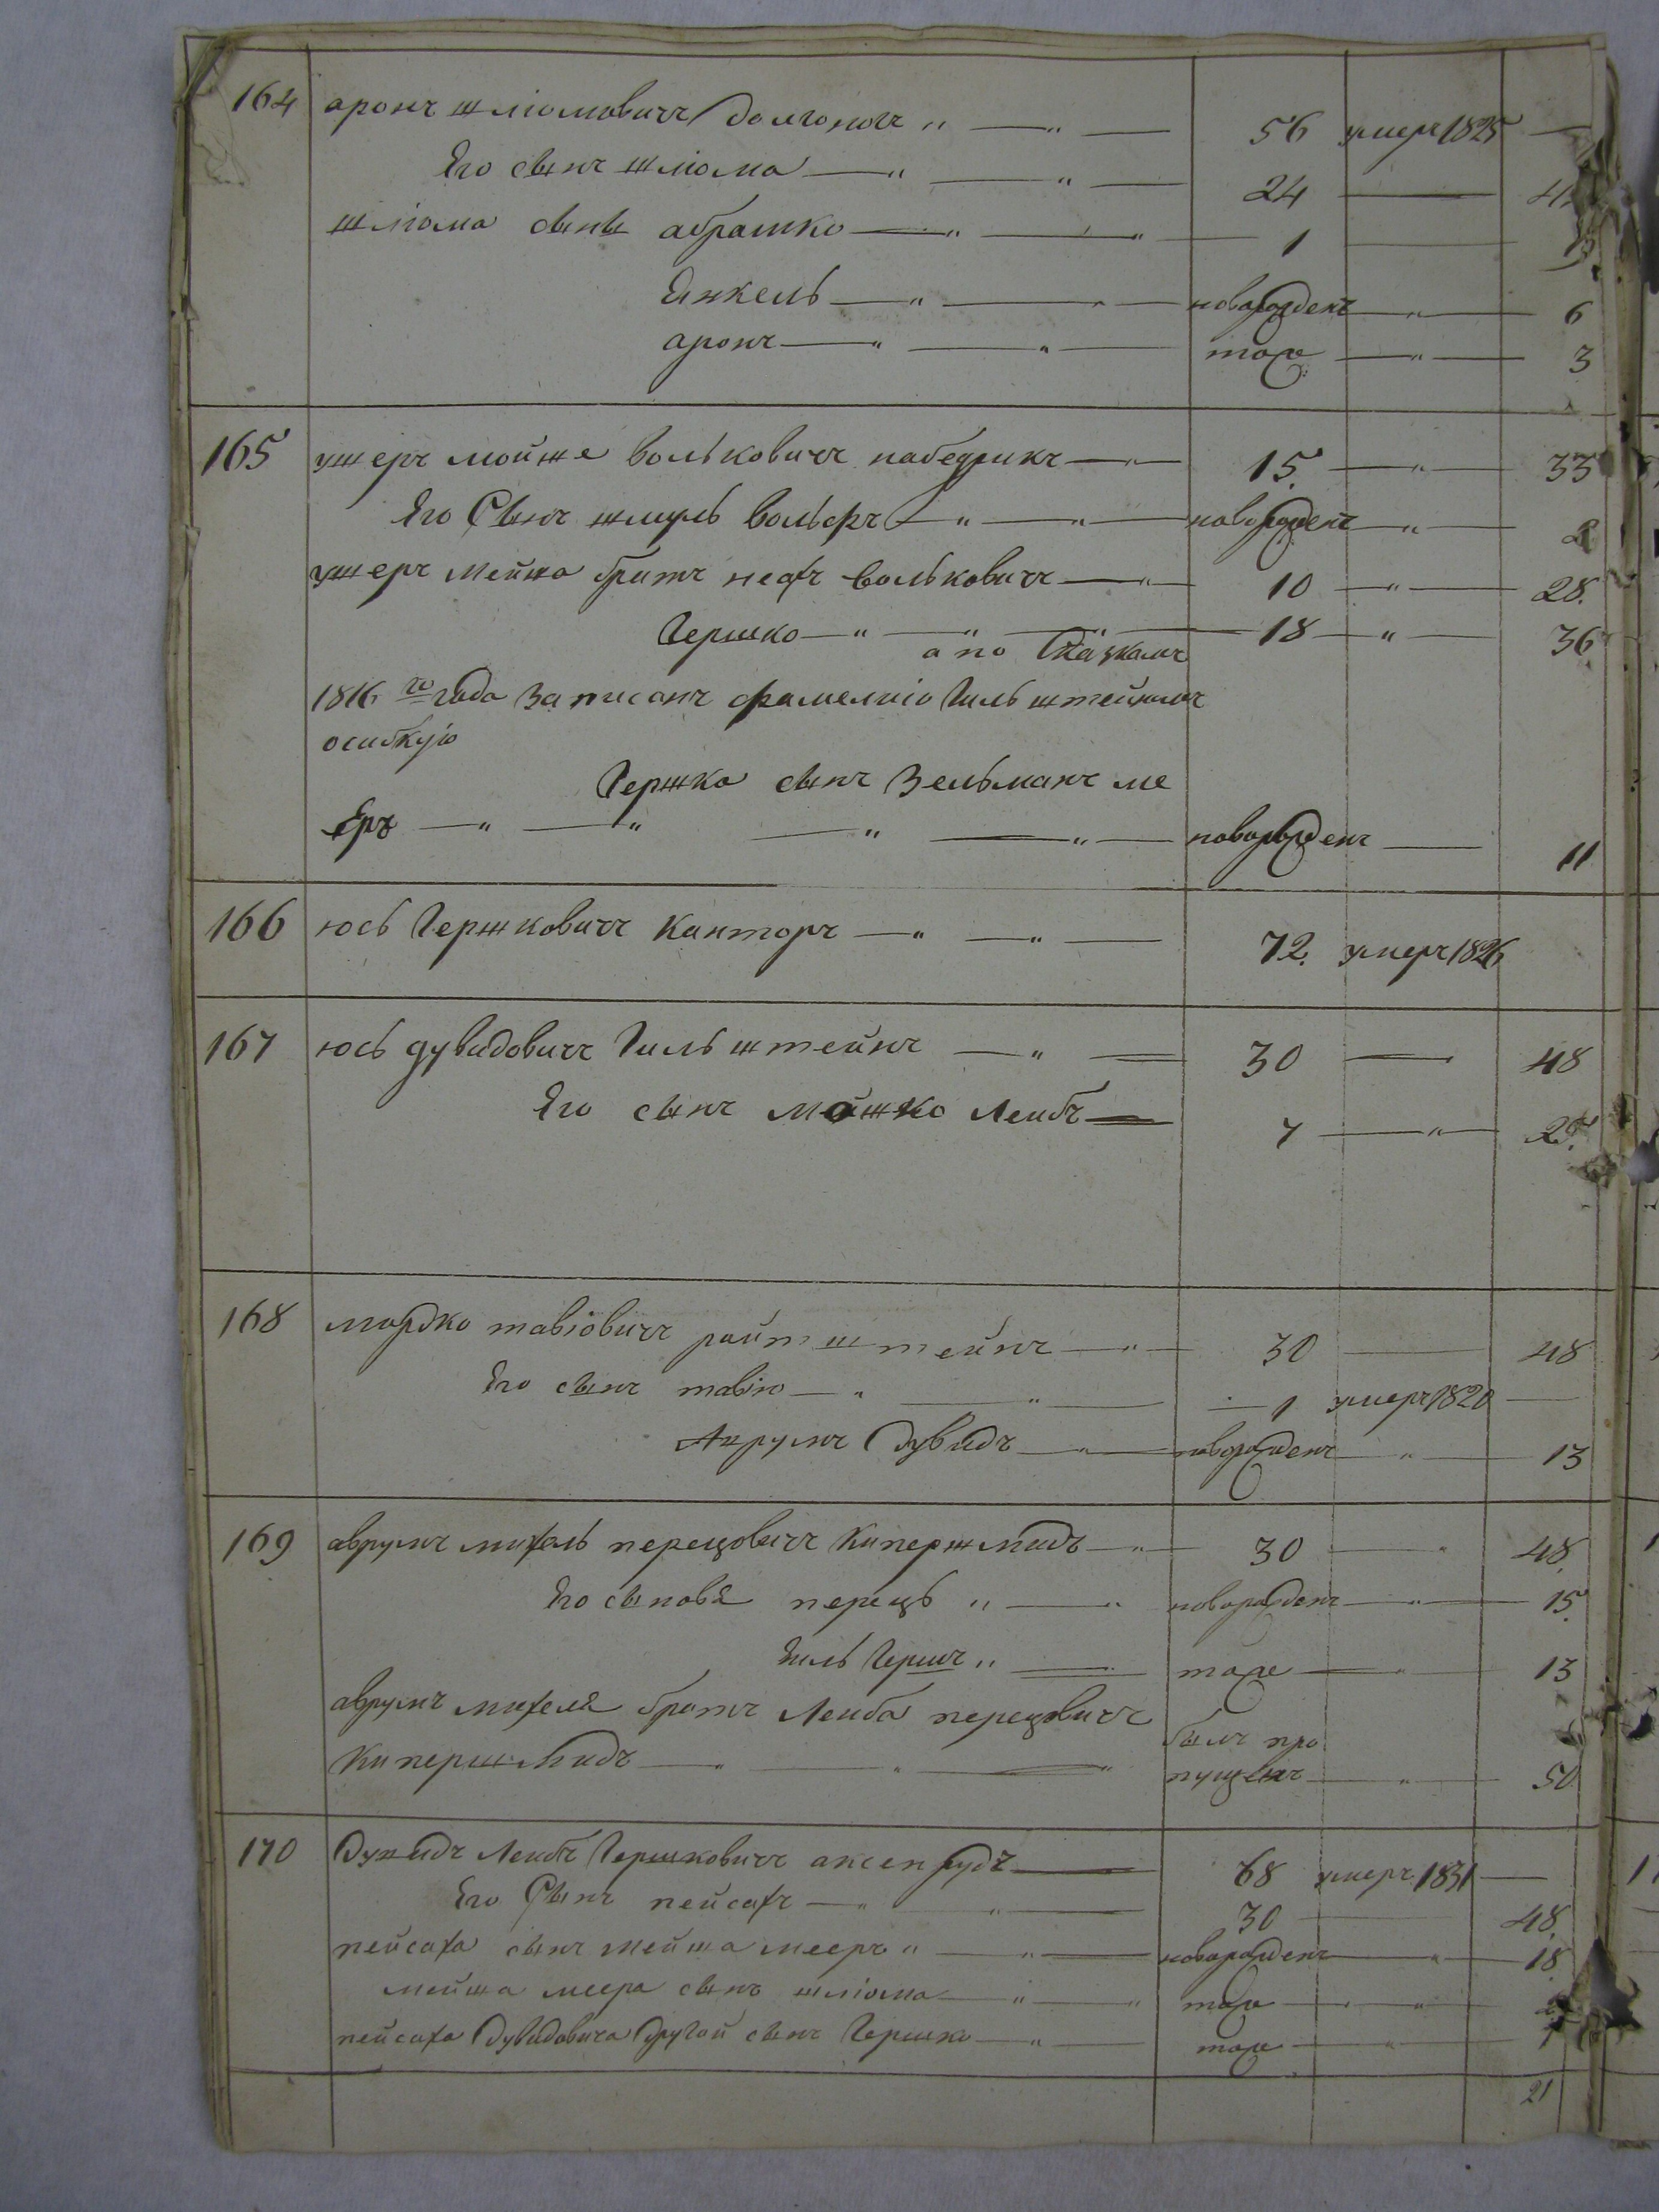 164 аронъ шліомовичъ долгоногъ 56 умеръ 1825
Его сынъ шліома 24
шліома сыны абрамко 1
Янкель новорожденъ 6
аронъ тоже 3
165 ушеръ мойше вольковичъ набедрикъ 15 33
Его Сынъ шмуль вольфъ новорожденъ 2
ушеръ мейша братъ несъ вольковичъ 10 28
Гершко 18 36
а по Сказкамъ
1816 го года Записанъ фамеліею Гильштейномъ
осибкую
Гершка сынъ Зельманъ ме
еръ новорожденъ 11
166 юсь Гершковичъ Канторъ 72 умеръ 1826
167 юсь дувидовичъ Гильштейнъ 30 48
Его сынъ Мошко Лейбъ 7 25
168 мордко тавіовичъ райтштейнъ 30 48
Его сынъ тавіо 1 умеръ 1820
Аврумъ Дувидъ новорожденъ 13
169 аврумъ михель перецовичъ Кипершмидъ 30 48
Его сыновя перецъ новорожденъ 15
Гершъ тоже 13
аврумъ михеля братъ Лейба перецовичъ былъ про
Кипершмидъ пущенъ 50
170 Дувидъ Лейбъ Гершковичъ аксенрудъ 68 умеръ 1831
Его Сынъ пейсахъ 30 48
пейсаха сынъ мейша мееръ новорожденъ 18
мейша меера сынъ шліома тоже
пейсаха Дувидовича Другой сынъ Гершко тоже 1
21